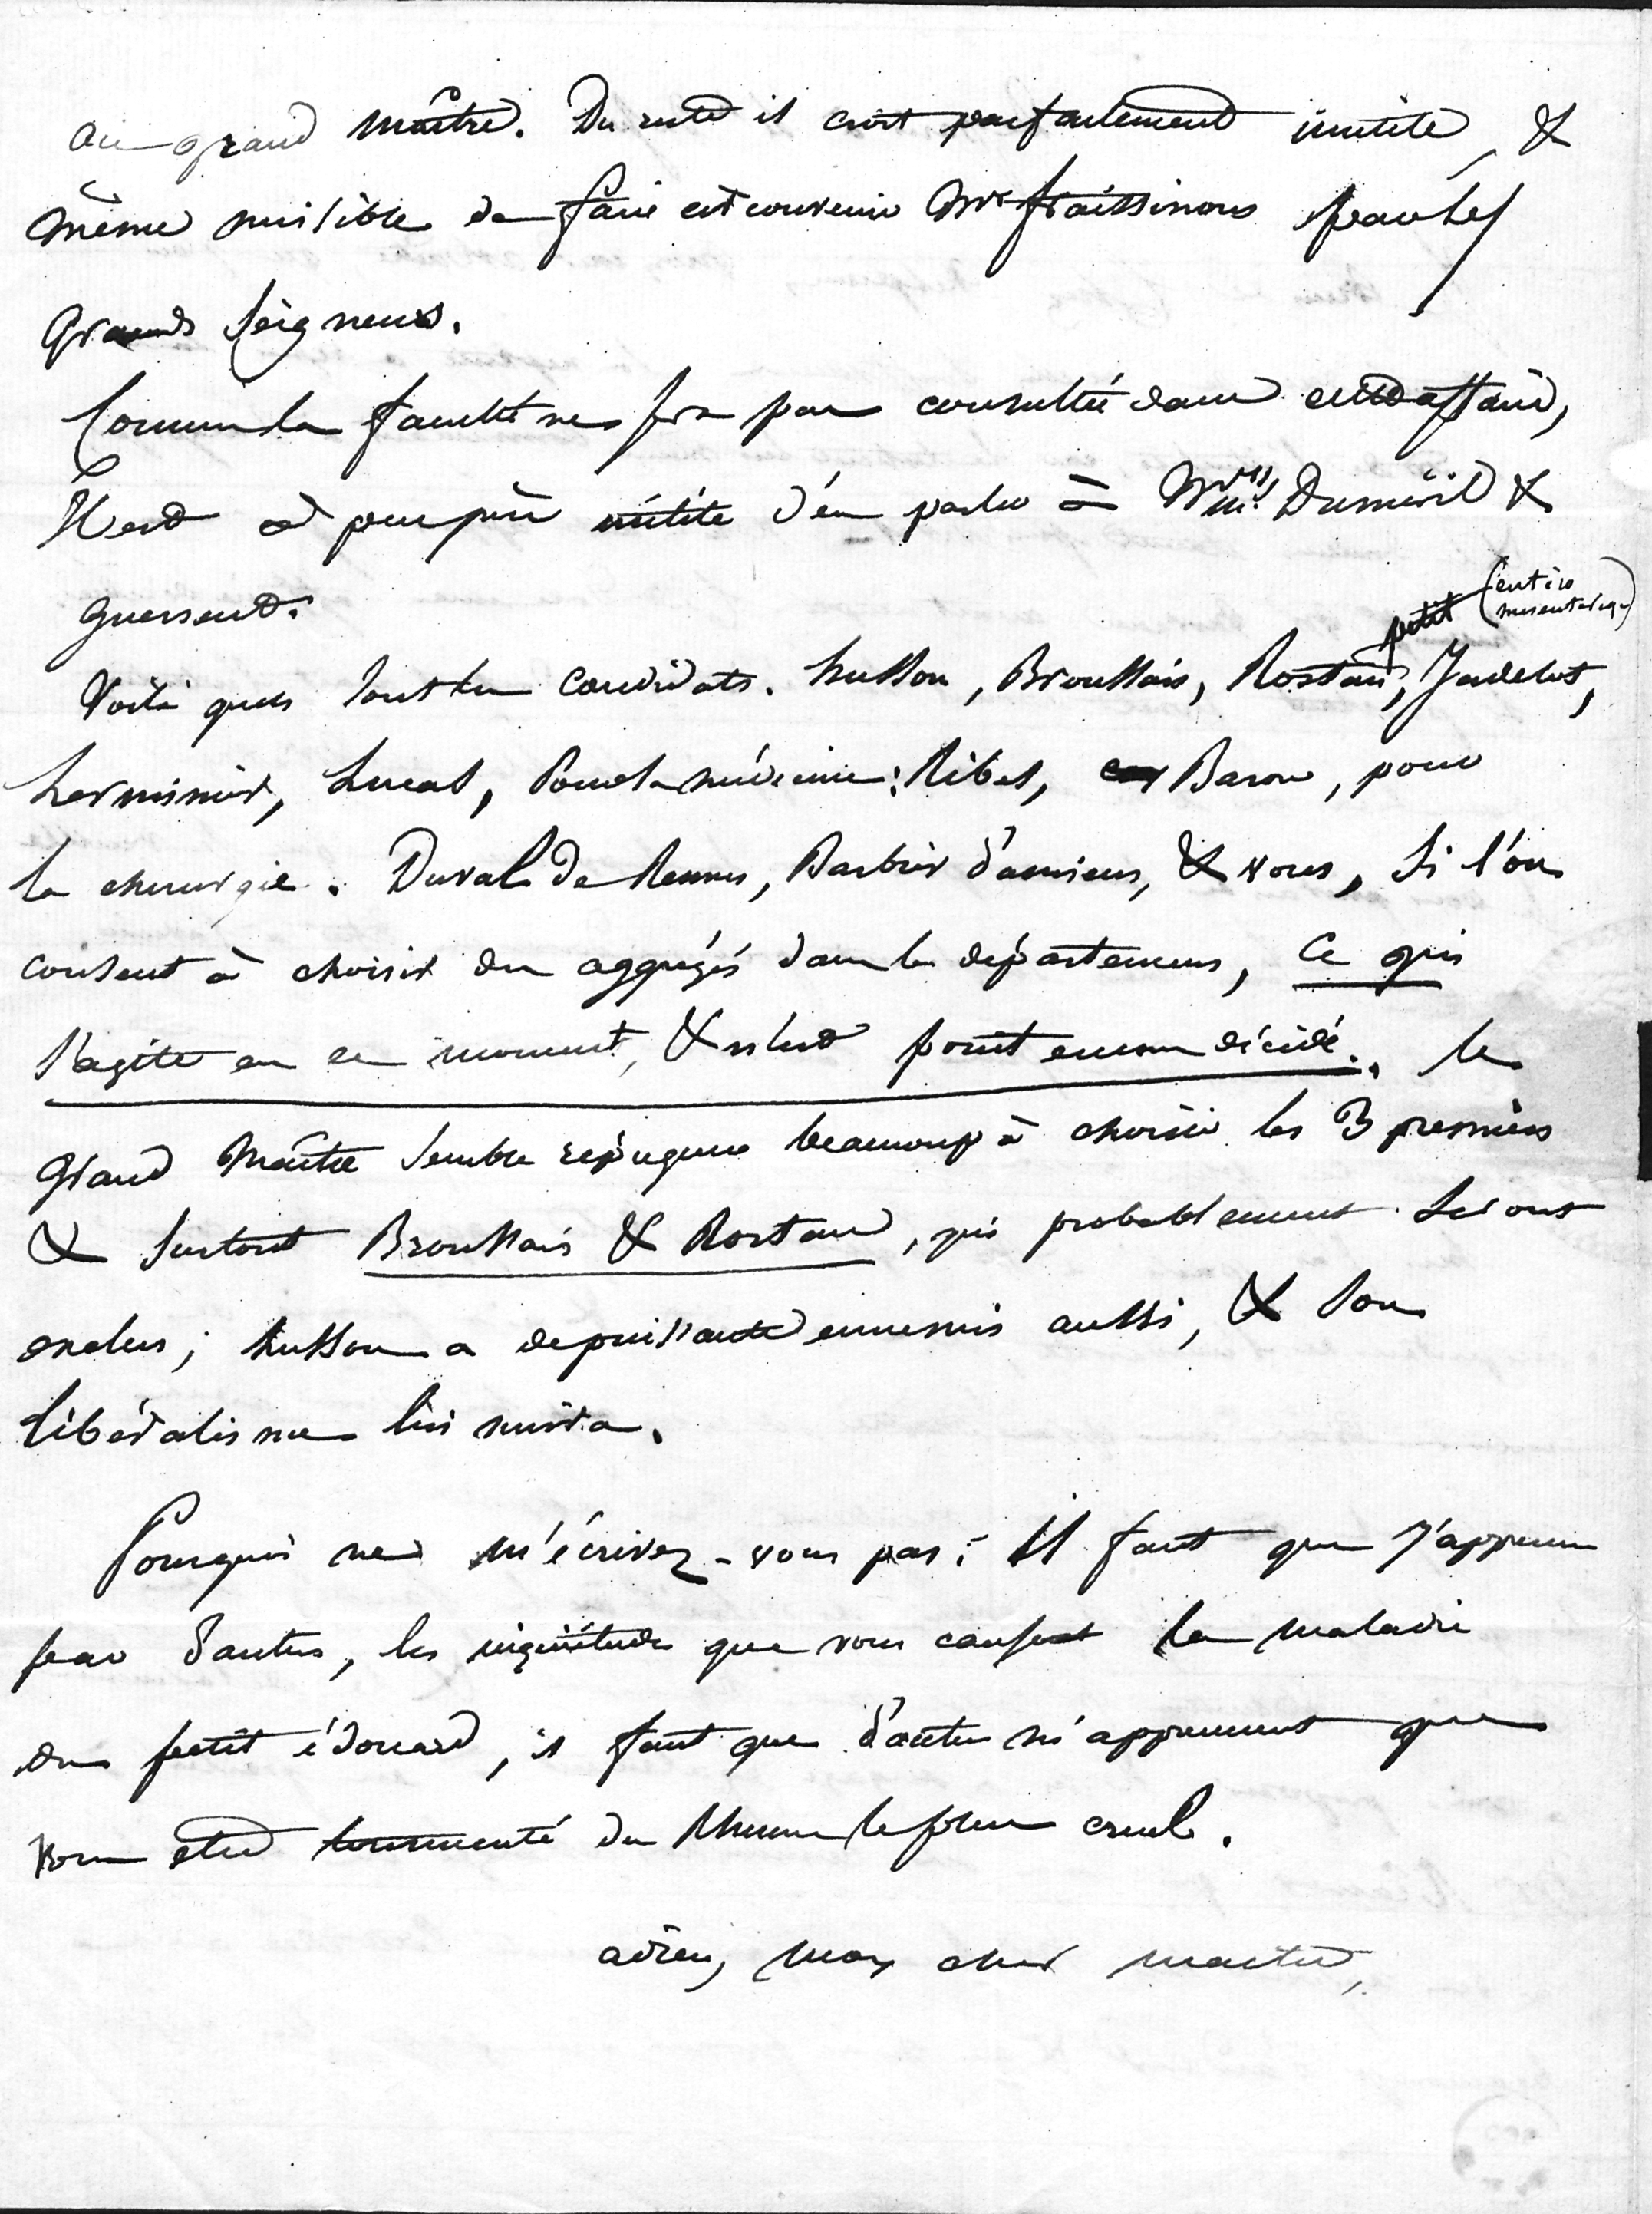 au grand maître. Du reste il croit parfaitement inutile, &
même nuisible de faire circonvenir Mr fraissinous par les
Grands Seigneurs.
Comme la faculté ne sera pas consultée dans cette affaire,
Il est à peu près inutile d'en parler à Mrs Duméril &
guersent.
petit (entéro mésentérique)
Voilà quels sont les candidats. husson, Broussais, Rostan, Jadelot,
herminier, Lucas, Pour la médecine: Ribes, Baron, pour
la chirurgie. Duval de Rennes, Barbier d'amiens, & vous, Si l'on
consent à choisir des aggrégés dans les départemens, Ce qui
s'agite en ce moment, & n'est point encore décidé.. le
Grand Maître semble répugner beaucoup à choisir les 3 premiers
& surtout Broussais & Rostan, qui probablement seront
exclus; husson a de puissants ennemis aussi, & son
libéralisme lui nuira.
Pourquoi ne m'écrivez-vous pas; Il faut que j'apprenne
par d'autres, les inquiétudes que vous causent la maladie
du petit édouard, il faut que d'autres m'apprennent que
vous êtes tourmenté du Rhume le plus cruel.
adieu, mon cher maître,